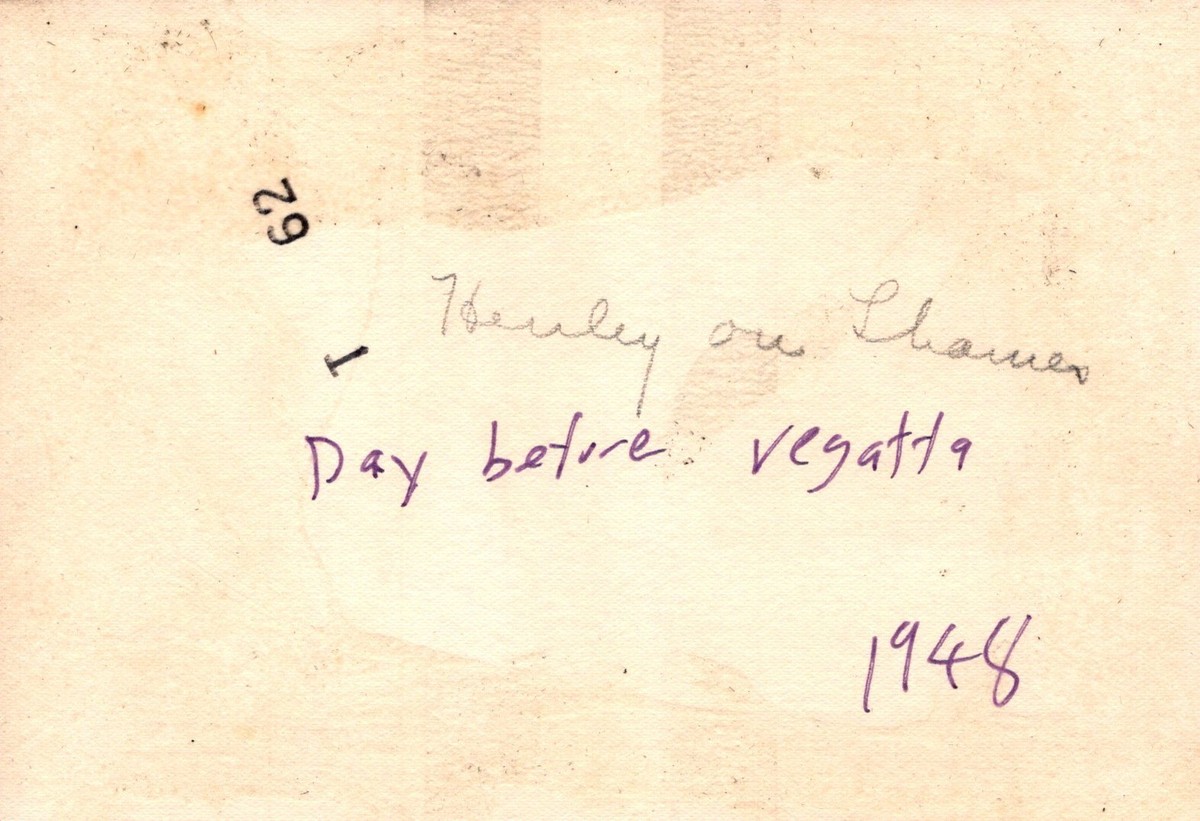 Henley on Thames
Day before regatta
1948